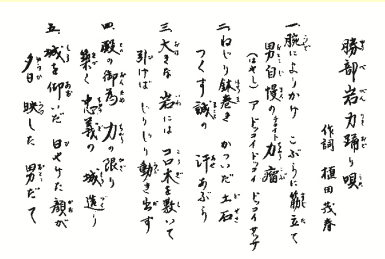 勝部岩力踊り唄
作詞 植田茂春
一、腕によりかけ こぶしに筋立て
男自慢の 力瘤
(はやし) ア ドッコイドッコイ ドッコイサッサ
二、ねじり鉢巻き かついだ土石
つくす誠の 汗あぶら
三、大きな岩には コロ木を敷いて
引けば じりじり動き出す
四、殿の御為 力の限り
築く忠義の 城造り
五、城を仰いだ 日やけた顔が
夕日に映した 男だて